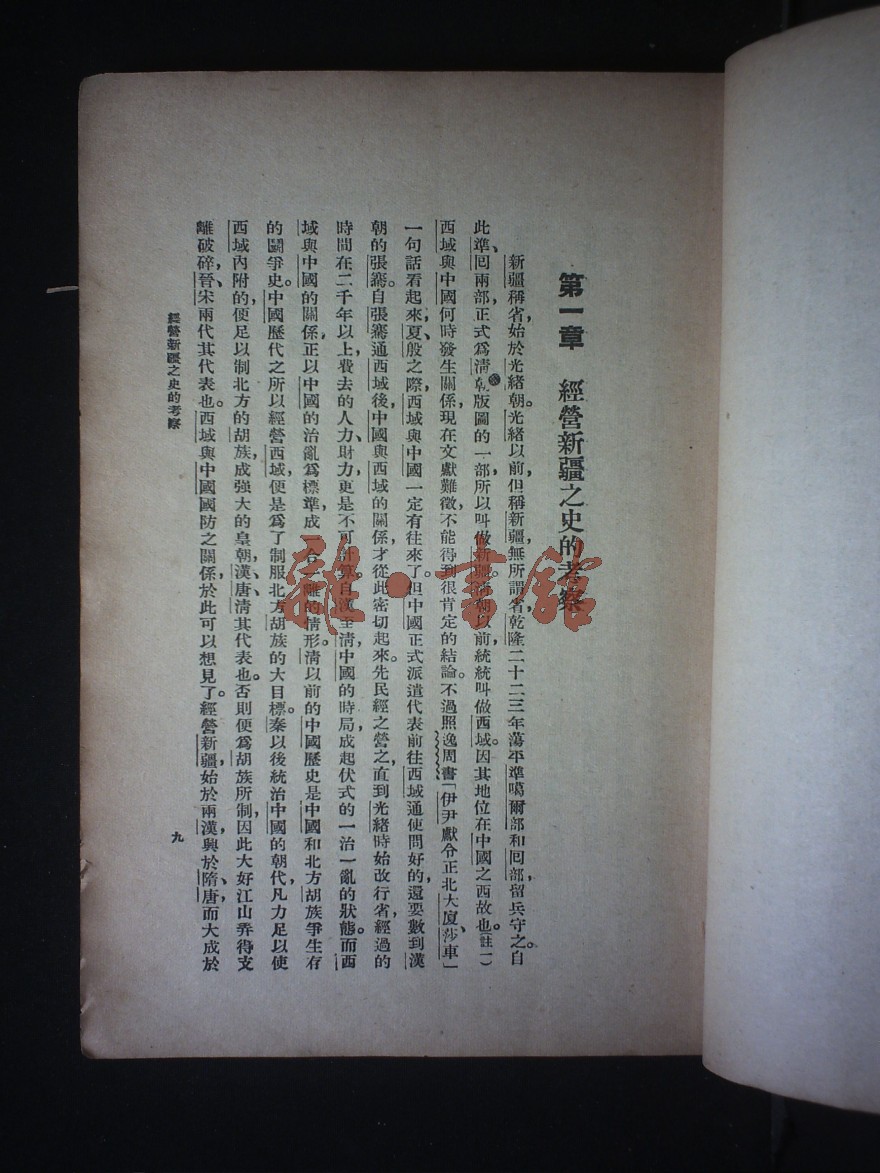 第一章　經營新疆之史的考察
新疆稱省，始於光緒朝。光緒以前，但稱新疆，無所謂省，乾隆二十二三年蕩平準噶爾部和回部，留兵守之。自
此，準、回兩部，正式爲清朝版圖的一部，所以叫做新疆。清朝以前，統統叫做西域。因其地位在中國之西故也。（註一）
西域與中國何時發生關係，現在文獻難徵，不能得到很肯定的結論。不過照逸周書「伊尹獻令正北大廈、莎車」
一句話看起來，夏、般之際，西域與中國一定有往來了。但中國正式派遣代表前往西域通使問好的，還要數到漢
朝的張騫。自張騫通西域後，中國與西域的關係，才從此密切起來。先民經之營之，直到光緒時始改行省，經過的
時間在二千年以上，費去的人力、財力，更是不可計算。自漢至清，中國的時局成起伏式的一治一亂的狀態。而西
域與中國的關係，正以中國的治亂爲標準，成一合一離的情形。清以前的中國歷史是中國和北方胡族爭生存
的鬭爭史。中國歷代之所以經營西域，便是爲了制服北方胡族的大目標。秦以後統治中國的朝代，凡力足以使
西域內附的，便足以制北方的胡族，成強大的皇朝，漢、唐、清其代表也。否則便爲胡族所制，因此大好江山弄得支
離破碎，晉、宋兩代其代表也。西域與中國國防之關係，於此可以想見了。經營新疆，始於兩漢，興於隋、唐，而大成於
經營新疆之史的考察
九
雜·書館